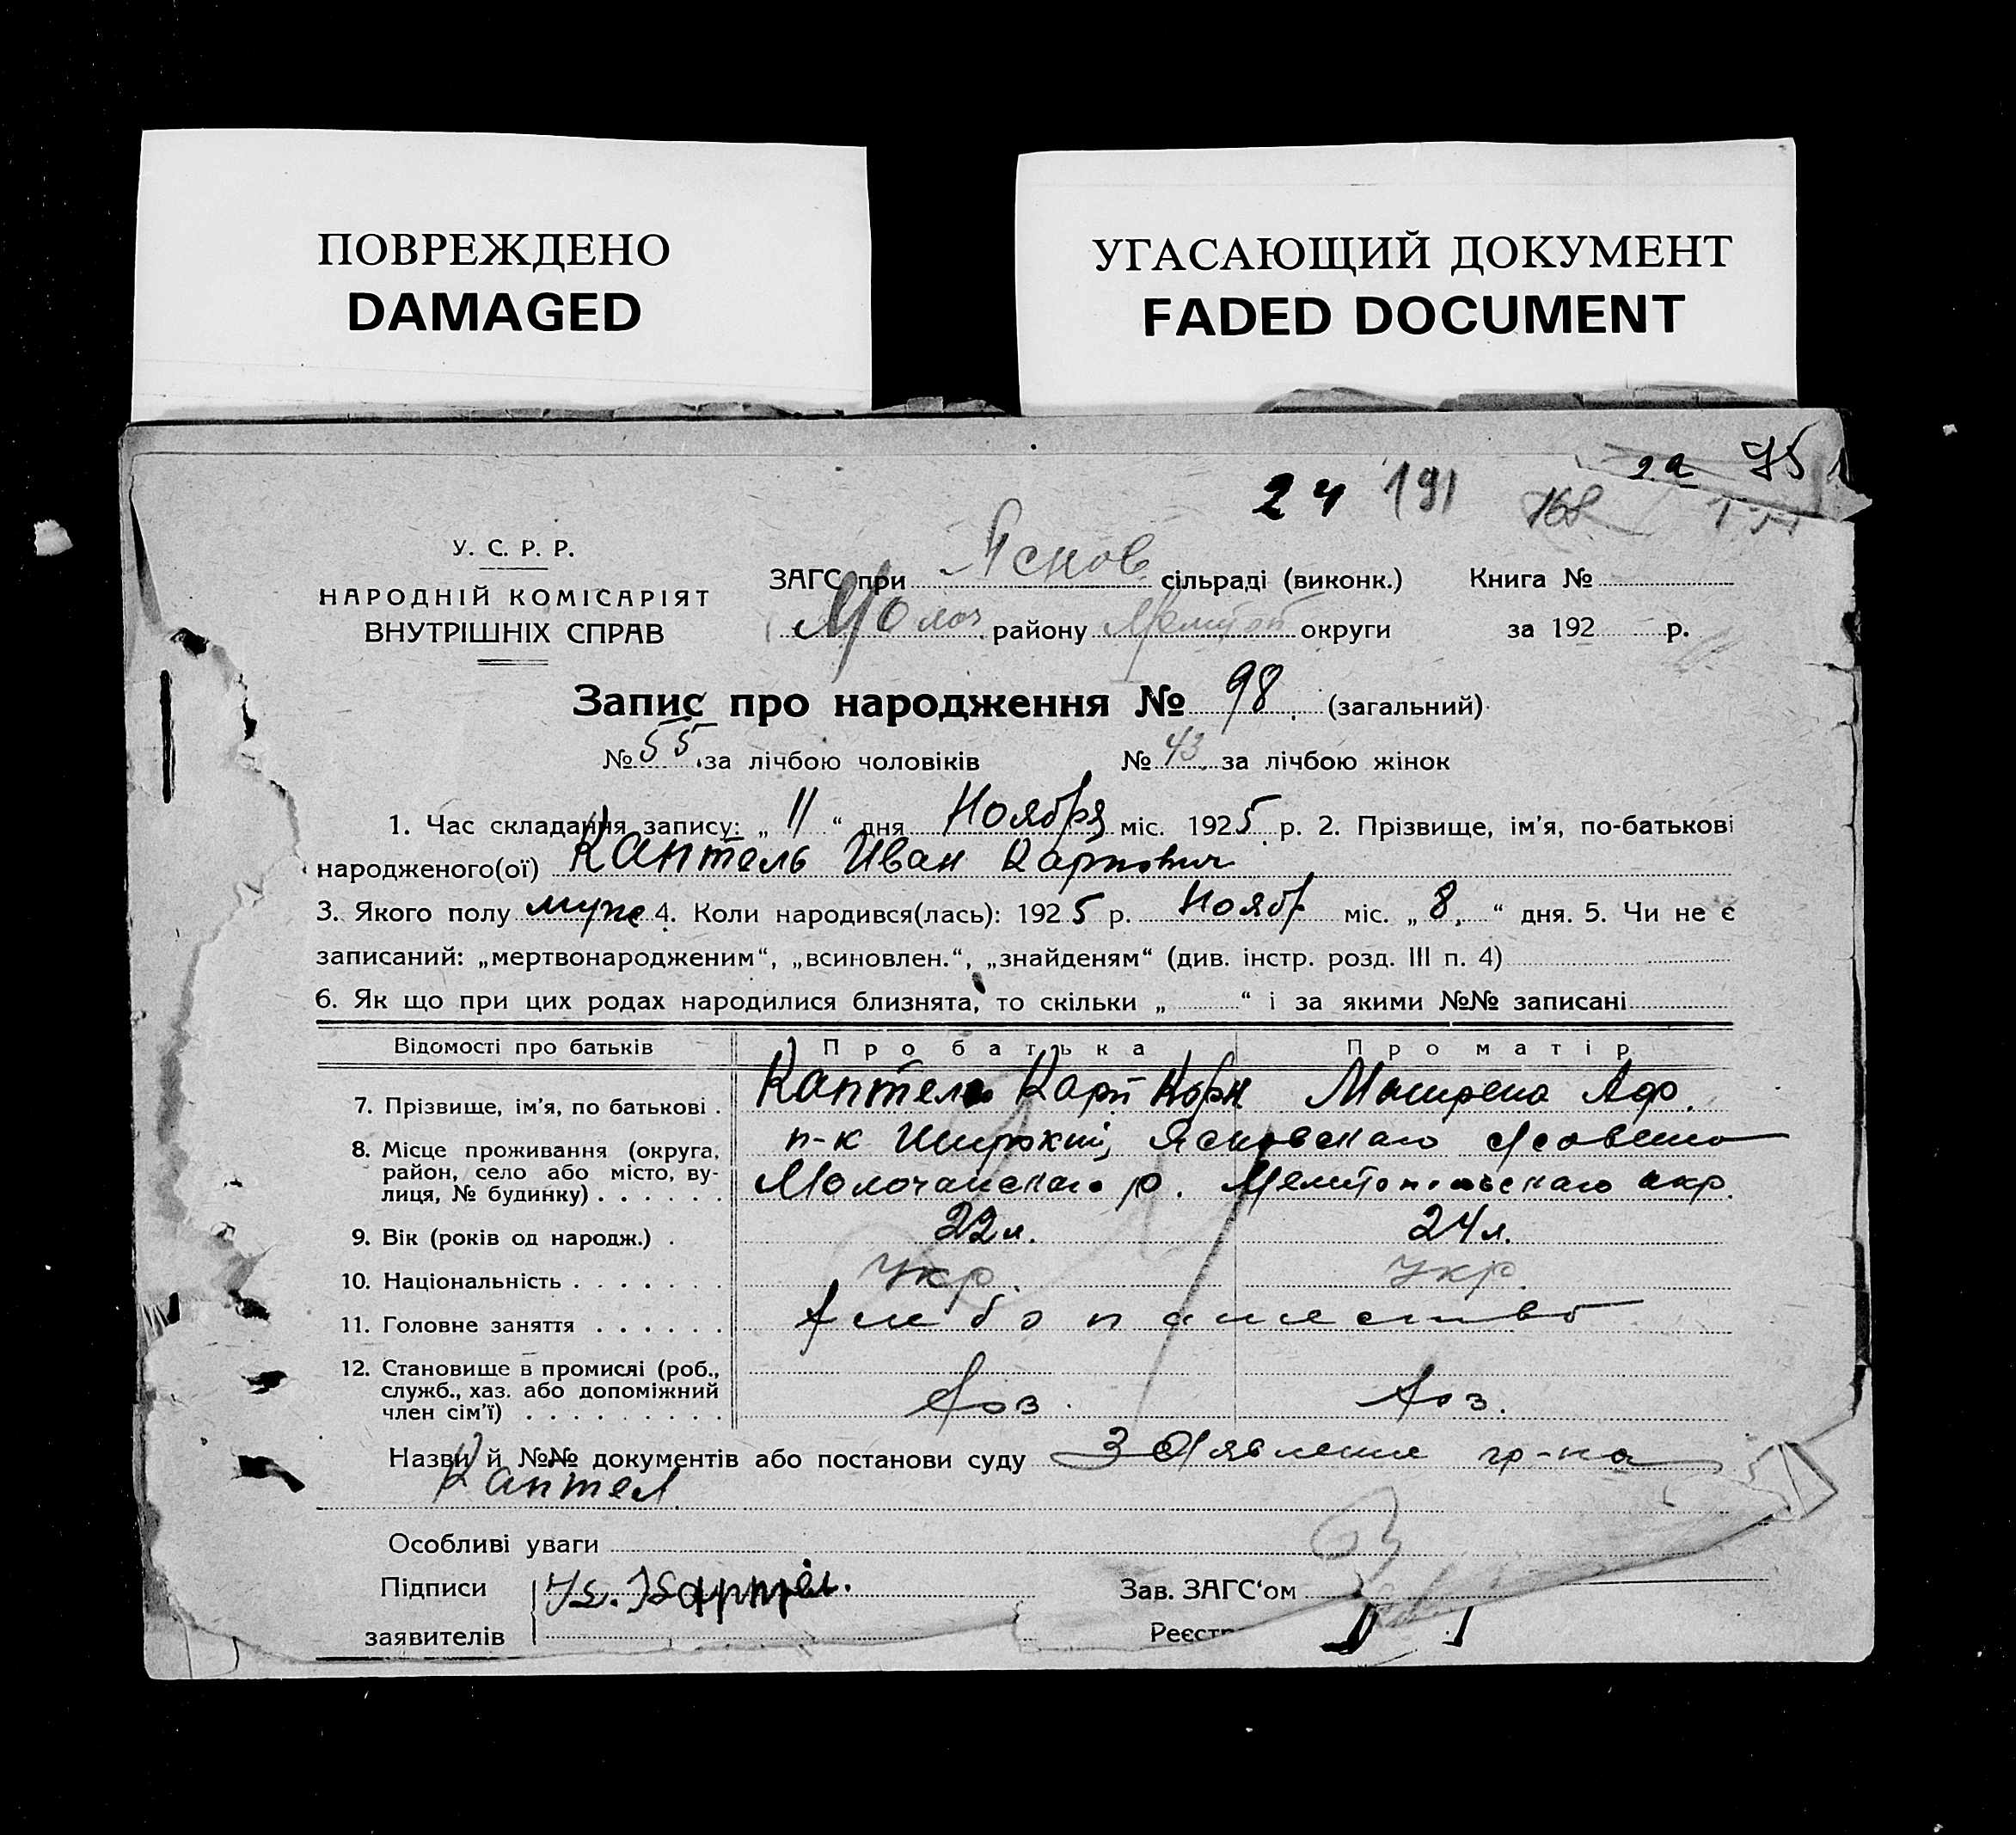 ПОВРЕЖДЕНО
DAMAGED
УГАСАЮЩИЙ ДОКУМЕНТ
FADED DOCUMENT
75
24 191 168
У. С. Р. Р.
НАРОДНІЙ КОМІСАРІЯТ
ВНУТРІШНІХ СПРАВ
ЗАГС при Яснов сільраді (виконк.) Книга №
Молоч району Мелитоп округи за 192 р.
Запис про народження № 98 (загальний)
№ 55 за лічбою чоловіків № 43 за лічбою жінок
1. Час складання запису: „ 11 “ дня Ноября міс. 1925 р. 2. Прізвище, ім’я, по-батькові
народженого(ої) Каптель Иван Карпович
3. Якого полу муж 4. Коли народився(лась): 1925 р. Ноябр міс. „ 8. “ дня. 5. Чи не є
записаний: „мертвонародженим“, „всиновлен.“, „знайденям“ (див. інстр. розд. III п. 4)
6. Як що при цих родах народилися близнята, то скільки „ “ і за якими №№ записані
Відомості про батьків Про батька Про матір
7. Прізвище, ім’я, по батькові . Каптель Карп Корн Аф.
8. Місце проживання (округа, район, село або місто, вулиця, № будинку) . . . . . . п-к Широкий, Ясновскаго
Молочанскаго р. Мелитопольскаго окр.
9. Вік (років од народж.) . 22 л. 24 л.
10. Національність . . . . . . . Укр. Укр.
11. Головне заняття . . . . . . Хлебопашество
12. Становище в промислі (роб., служб., хаз. або допоміжний член сім’ї) . . . . . . . . . Хоз. Хоз.
Назви й №№ документів або постанови суду Заявление гр-на
Каптел
Особливі уваги
Підписи К. Каптел.
Зав. ЗАГС‘ом
заявителів
Реєстр